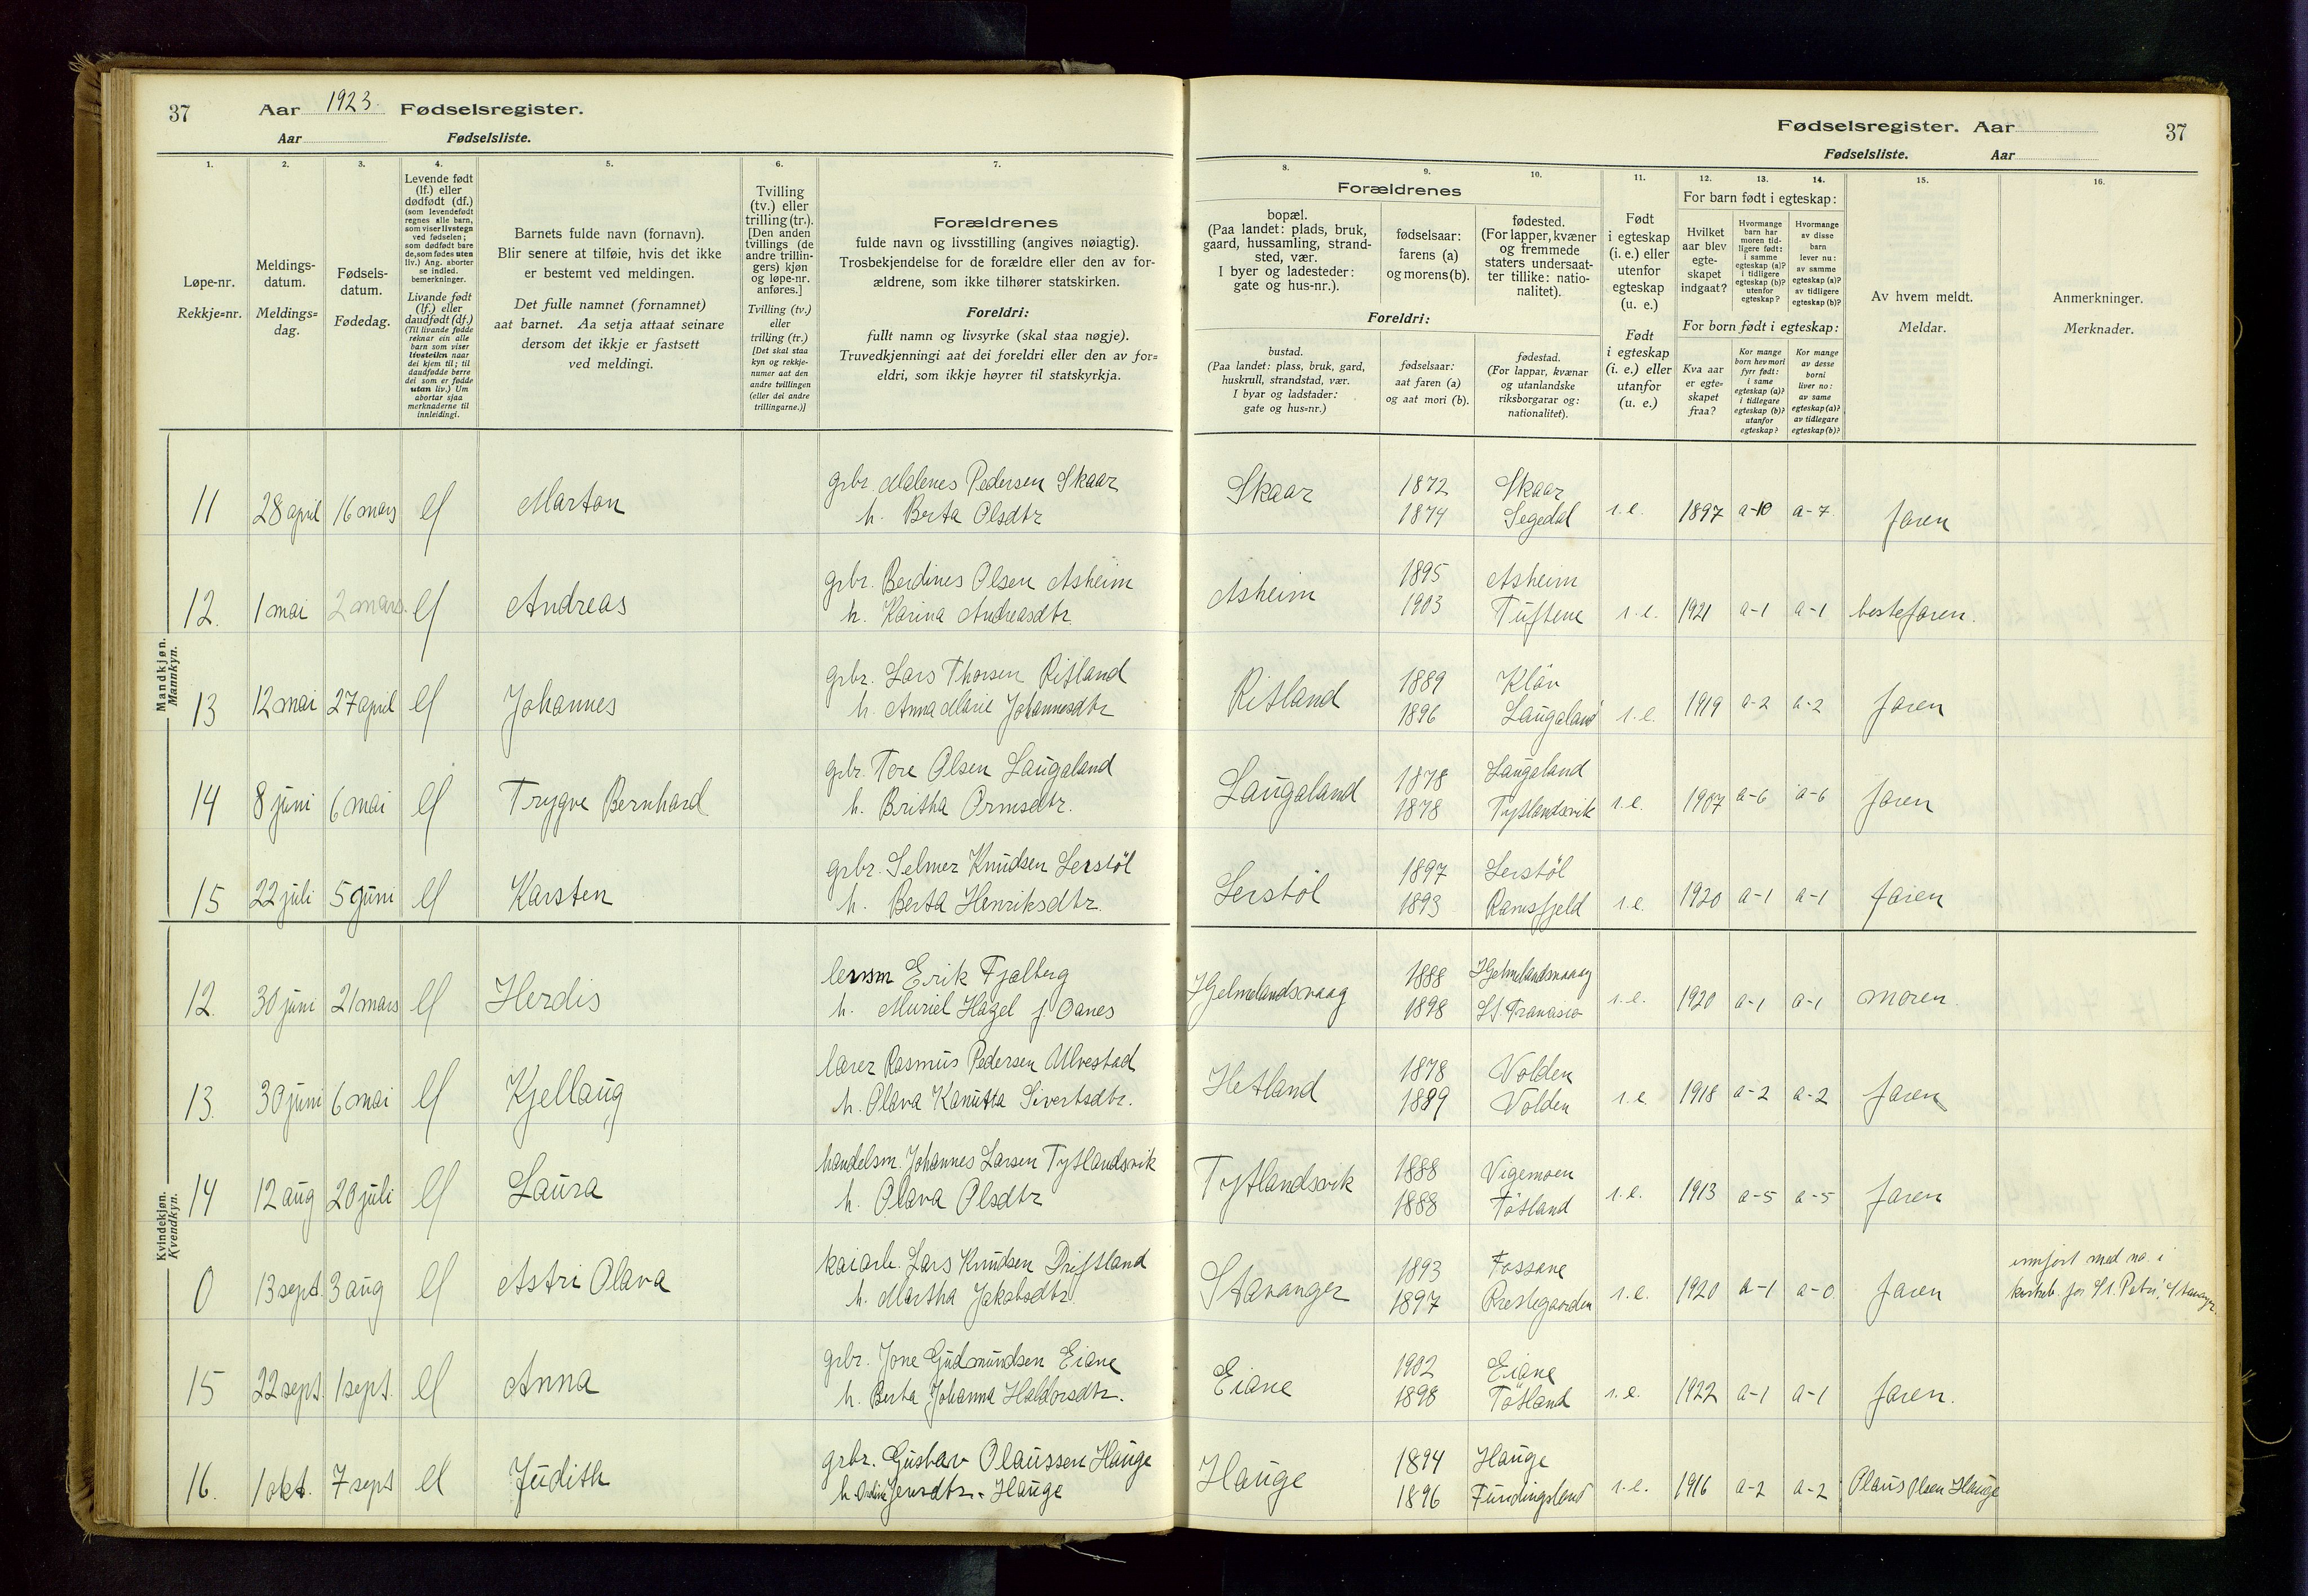 37 Aar 1923. Fødselsregister.
Aar Fødselsliste.
1.
Løpe-nr.
Rekkje=nr.
2.
Meldings-
datum.
Meldings=
dag.
3.
Fødsels-
datum.
Fødedag.
4.
Levende født
(lf.) eller
dødfødt (df.)
(som levendefødt
regnes alle barn,
som viser livstegn
ved fødselen;
som dødfødt bare
de, som fødes uten
liv.) Ang. aborter
se indled.
bemerkninger.
Livande født
(lf.) eller
daudfødt (df.)
(Til livande fødde
reknar ein alle
barn som viser
livsteikn naar
dei kjem til; til
daudfødde berre
dei som er fødde
utan liv.) Um
abortar sjaa
merknaderne til
innleidingi.
5.
Barnets fulde navn (fornavn).
Blir senere at tilføie, hvis det ikke
er bestemt ved meldingen.
Det fulle namnet (fornamnet)
aat barnet. Aa setja attaat seinare
dersom det ikkje er fastsett
ved meldingi.
6.
Tvilling
(tv.) eller
trilling (tr.).
[Den anden
tvillings (de
andre trillin-
gers) kjøn
og løpe-nr.
anføres.]
Tvilling (tv.)
eller
trilling (tr.)
[Det skal staa
kyn og rekkje-
numer aat den
andre tvillingen
(eller dei andre
trillingarne.)]
7.
Forældrenes
fulde navn og livsstilling (angives nøiagtig).
Trosbekjendelse for de forældre eller den av for-
ældrene, som ikke tilhører statskirken.
Foreldri:
fullt namn og livsyrke (skal staa nøgje).
Truvedkjenningi aat dei foreldri eller den av for=
eldri, som ikkje høyrer til statskyrkja.
Fødselsregister. Aar 37
Fødselsliste. Aar
Forældrenes
8.
bopæl.
(Paa landet: plads, bruk,
gaard, hussamling, strand-
sted, vær.
I byer og ladesteder:
gate og hus-nr.).
9.
fødselsaar:
farens (a)
og morens (b).
10.
fødested.
(For lapper, kvæner
og fremmede
staters undersaat-
ter tillike: natio-
nalitet).
Foreldri:
bustad.
(Paa landet: plass, bruk, gard,
huskrull, strandstad, vær.
I byar og ladstader:
gate og hus-nr.)
fødselsaar:
aat faren (a)
og aat mori (b).
fødestad.
(For lappar, kvænar
og utanlandske
riksborgarar og:
nationalitet).
11.
Født
i egteskap
(i. e.) eller
utenfor
egteskap
(u. e.)
Født
i egteskap
(i. e.) eller
utanfor
(u. e.)
12. 13. 14.
For barn født i egteskap:
Hvilket
aar blev
egte-
skapet
indgaat?
Hvormange
barn har
moren tid-
ligere født:
i samme
egteskap (a)?
i tidligere
egteskap (b)?
utenfor
egteskap?
Hvormange
av disse
barn
lever nu:
av samme
egteskap (a)?
av tidligere
egteskap (b)?
For born født i egteskap:
Kva aar
er egte-
skapet
fraa?
Kor mange
born hev mori
fyrr født:
i same
egteskap (a)?
i tidlegare
egteskap (b)?
utanfor
egteskap?
Kor mange
av desse
borni
liver no:
av same
egteskap (a)?
av tidlegare
egteskap (b)?
15.
Av hvem meldt.
Meldar.
16.
Anmerkninger.
Merknader.
Mandkjøn.
Mannkyn.
11 28 april 16 mars lf Marton grbr. Malenes Pedersen Skaar Skaar 1872 Skaar i.e. 1897 a-10 a-7 faren
h. Berta Olsdtr 1874 Segedal
12. 1 mai 2 mars. lf Andreas grbr. Berdines Olsen Asheim Asheim 1895 Asheim i.e. 1921 a-1 a-1 bestefaren.
h. Karina Andreasdtr. 1903 Tuftene
13 12 mai 27 april lf Johannes grbr. Lars Thorsen Ritland Ritland 1889 Kläv i.e. 1919 a-2 a-2 faren
h. Anna Marie Johannesdtr 1896 Laugaland
14 8 juni 6 mai lf Trygve Bernhard grbr. Tore Olsen Laugaland Laugaland 1878 Laugaland i.e. 1907 a-6 a-6 faren
h. Britha Ormsdtr. 1878 Tytlandsvik
15 22 juli 5 juni lf Karsten grbr. Selmer Knudsen Lerstöl Lerstöl 1897 Lerstöl i.e. 1920 a-1 a-1 faren
h. Berta Henriksdtr. 1893 Ramsfjeld
Kvindekjøn.
Kvendkyn.
12. 30 juni 21 mars lf Herdis lensm Erik Fjelberg Hjelmelandsvaag 1888 Hjelmelandsvaag i.e. 1920 a-1 a-1 moren.
h. Muriel Hazel f. Oanes 1898 St. Francisco
13. 30 juni 6 mai lf Kjellaug lærer Rasmus Pedersen Ulvestad Hetland 1878 Volden i.e. 1918 a-2 a-2 faren
h. Olava Kanutta Sivertsdtr. 1889 Volden
14 12 aug 20 juli lf Laura handelsm. Johannes Larsen Tytlandsvik Tytlandsvik 1888 Vigemoen i.e. 1913 a-5 a-5 faren
h. Olava Olsdtr 1888 Tötland
0 13 sept. 3 aug lf Astri Olava kaiarb. Lars Knudsen Driftland Stavanger 1893 Fossane i.e. 1920 a-1 a-0 faren innfört med no. i
h. Martha Jakobsdtr. 1897 Prestegaarden kirkeb. for St. Petri, Stavanger.
15 22 sept. 1 sept. lf Anna grbr. Jone Gudmundsen Eiane Eiane 1902 Eiane i.e. 1922 a-1 a-1 faren.
h. Berta Johanna Haldorsdtr. 1898 Tötland
16. 1 okt. 7 sept lf Judith grbr. Gustav Olaussen Hauge Hauge 1894 Hauge i.e. 1916 a-2 a-2 Olaus Olsen Hauge
h. Jensdtr. Hauge 1896 Fundingsland